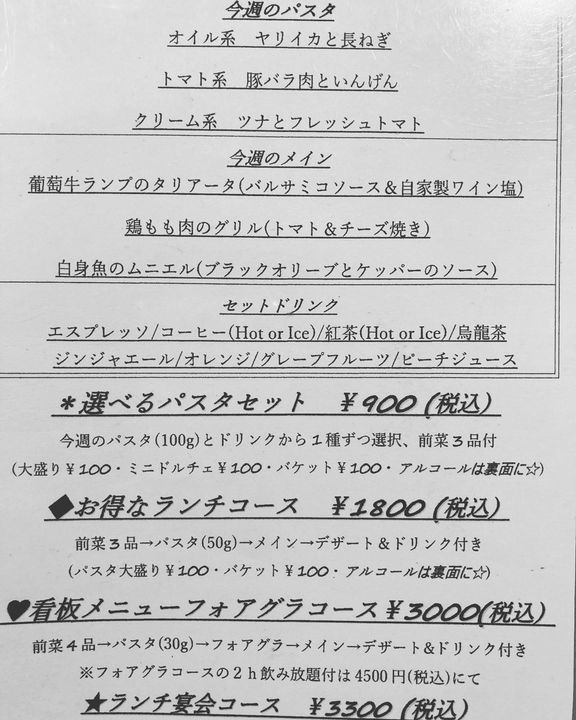 今週のパスタ
オイル系　ヤリイカと長ねぎ
トマト系　豚バラ肉といんげん
クリーム系　ツナとフレッシュトマト
今週のメイン
葡萄牛ランプのタリアータ(バルサミコソース＆自家製ワイン塩)
鶏もも肉のグリル(トマト＆チーズ焼き)
白身魚のムニエル(ブラックオリーブとケッパーのソース)
セットドリンク
エスプレッソ/コーヒー(Hot or Ice)/紅茶(Hot or Ice)/烏龍茶
ジンジャエール/オレンジ/グレープフルーツ/ピーチジュース
＊選べるパスタセット　￥900 (税込)
今週のパスタ(100g)とドリンクから１種ずつ選択、前菜３品付
(大盛り￥100・ミニドルチェ￥100・バケット￥100・アルコールは裏面に☆)
◆お得なランチコース　￥1800 (税込)
前菜３品→パスタ(50g)→メイン→デザート＆ドリンク付き
(パスタ大盛り￥100・バケット￥100・アルコールは裏面に☆)
♥看板メニューフォアグラコース￥3000(税込)
前菜４品→パスタ(30g)→フォアグラ→メイン→デザート&ドリンク付き
※フォアグラコースの２ｈ飲み放題付は 4500 円(税込)にて
★ランチ宴会コース　￥3300 (税込)